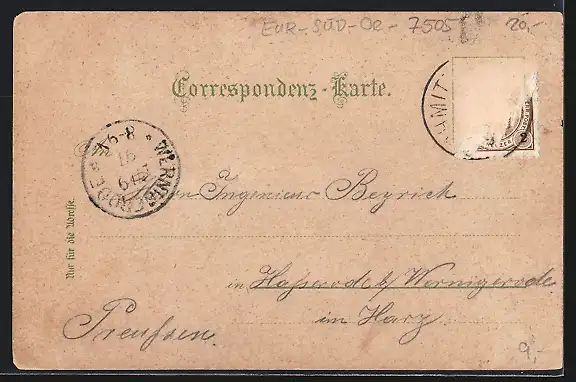 EUR-SÜD-ÖR- 7505
20,-
Correspondenz-Karte.
WERNIGERODE
6-8 V.
Nur für die Adresse.
Herrn Ingenieur Beyrich
in Hasserode b/ Wernigerode
im Harz
Preussen.
9,-